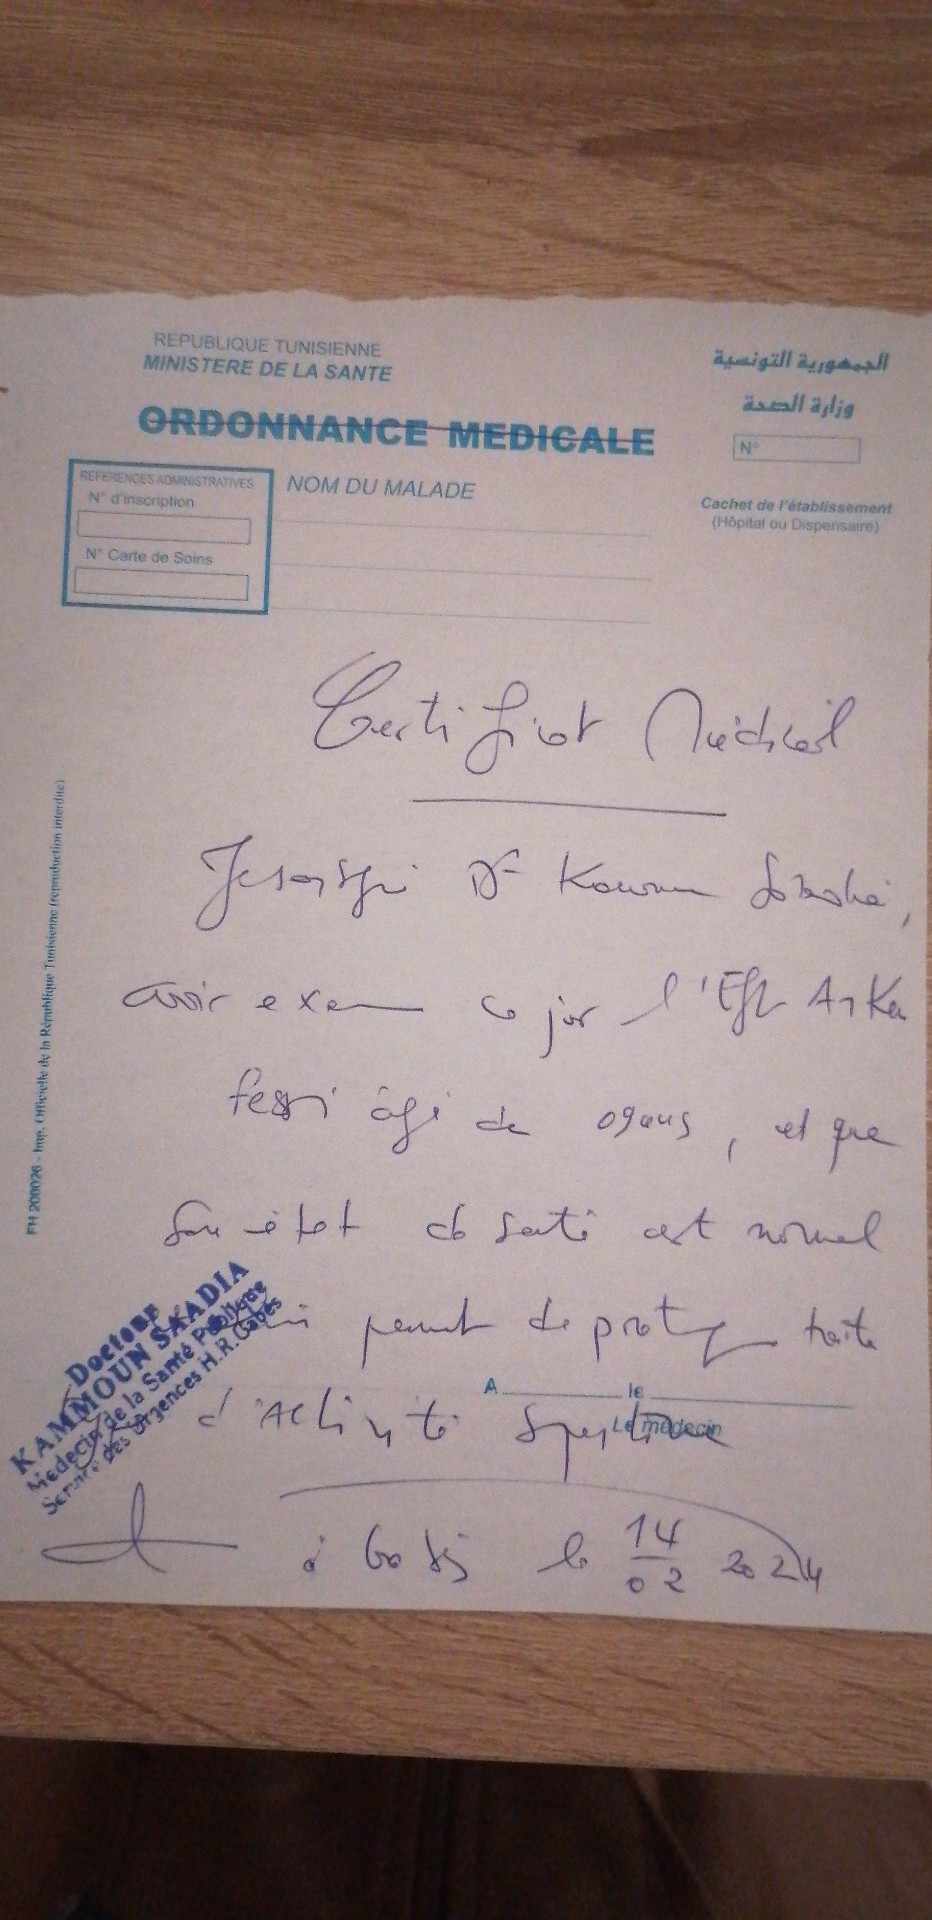 REPUBLIQUE TUNISIENNE
MINISTERE DE LA SANTE
الجمهورية التونسية
وزارة الصحة
ORDONNANCE MEDICALE
N°
REFERENCES ADMINISTRATIVES
N° d'inscription
N° Carte de Soins
NOM DU MALADE
Cachet de l'établissement
(Hôpital ou Dispensaire)
Certificat Médical
Je soussigné Dr Kammoun Saadia,
avoir examiné ce jour l'Eft
âgé de 09 ans, et que
Son état de santé est normal
permet de pratiquer toute
d'activité sportive
à Gabès le 14/02 2024
A le
Le médecin
Docteur
KAMMOUN SAADIA
Médecin de la Santé Publique
Service des Urgences H.R.Gabès
FH 200026 - Imp. Officielle de la République Tunisienne (reproduction interdite)